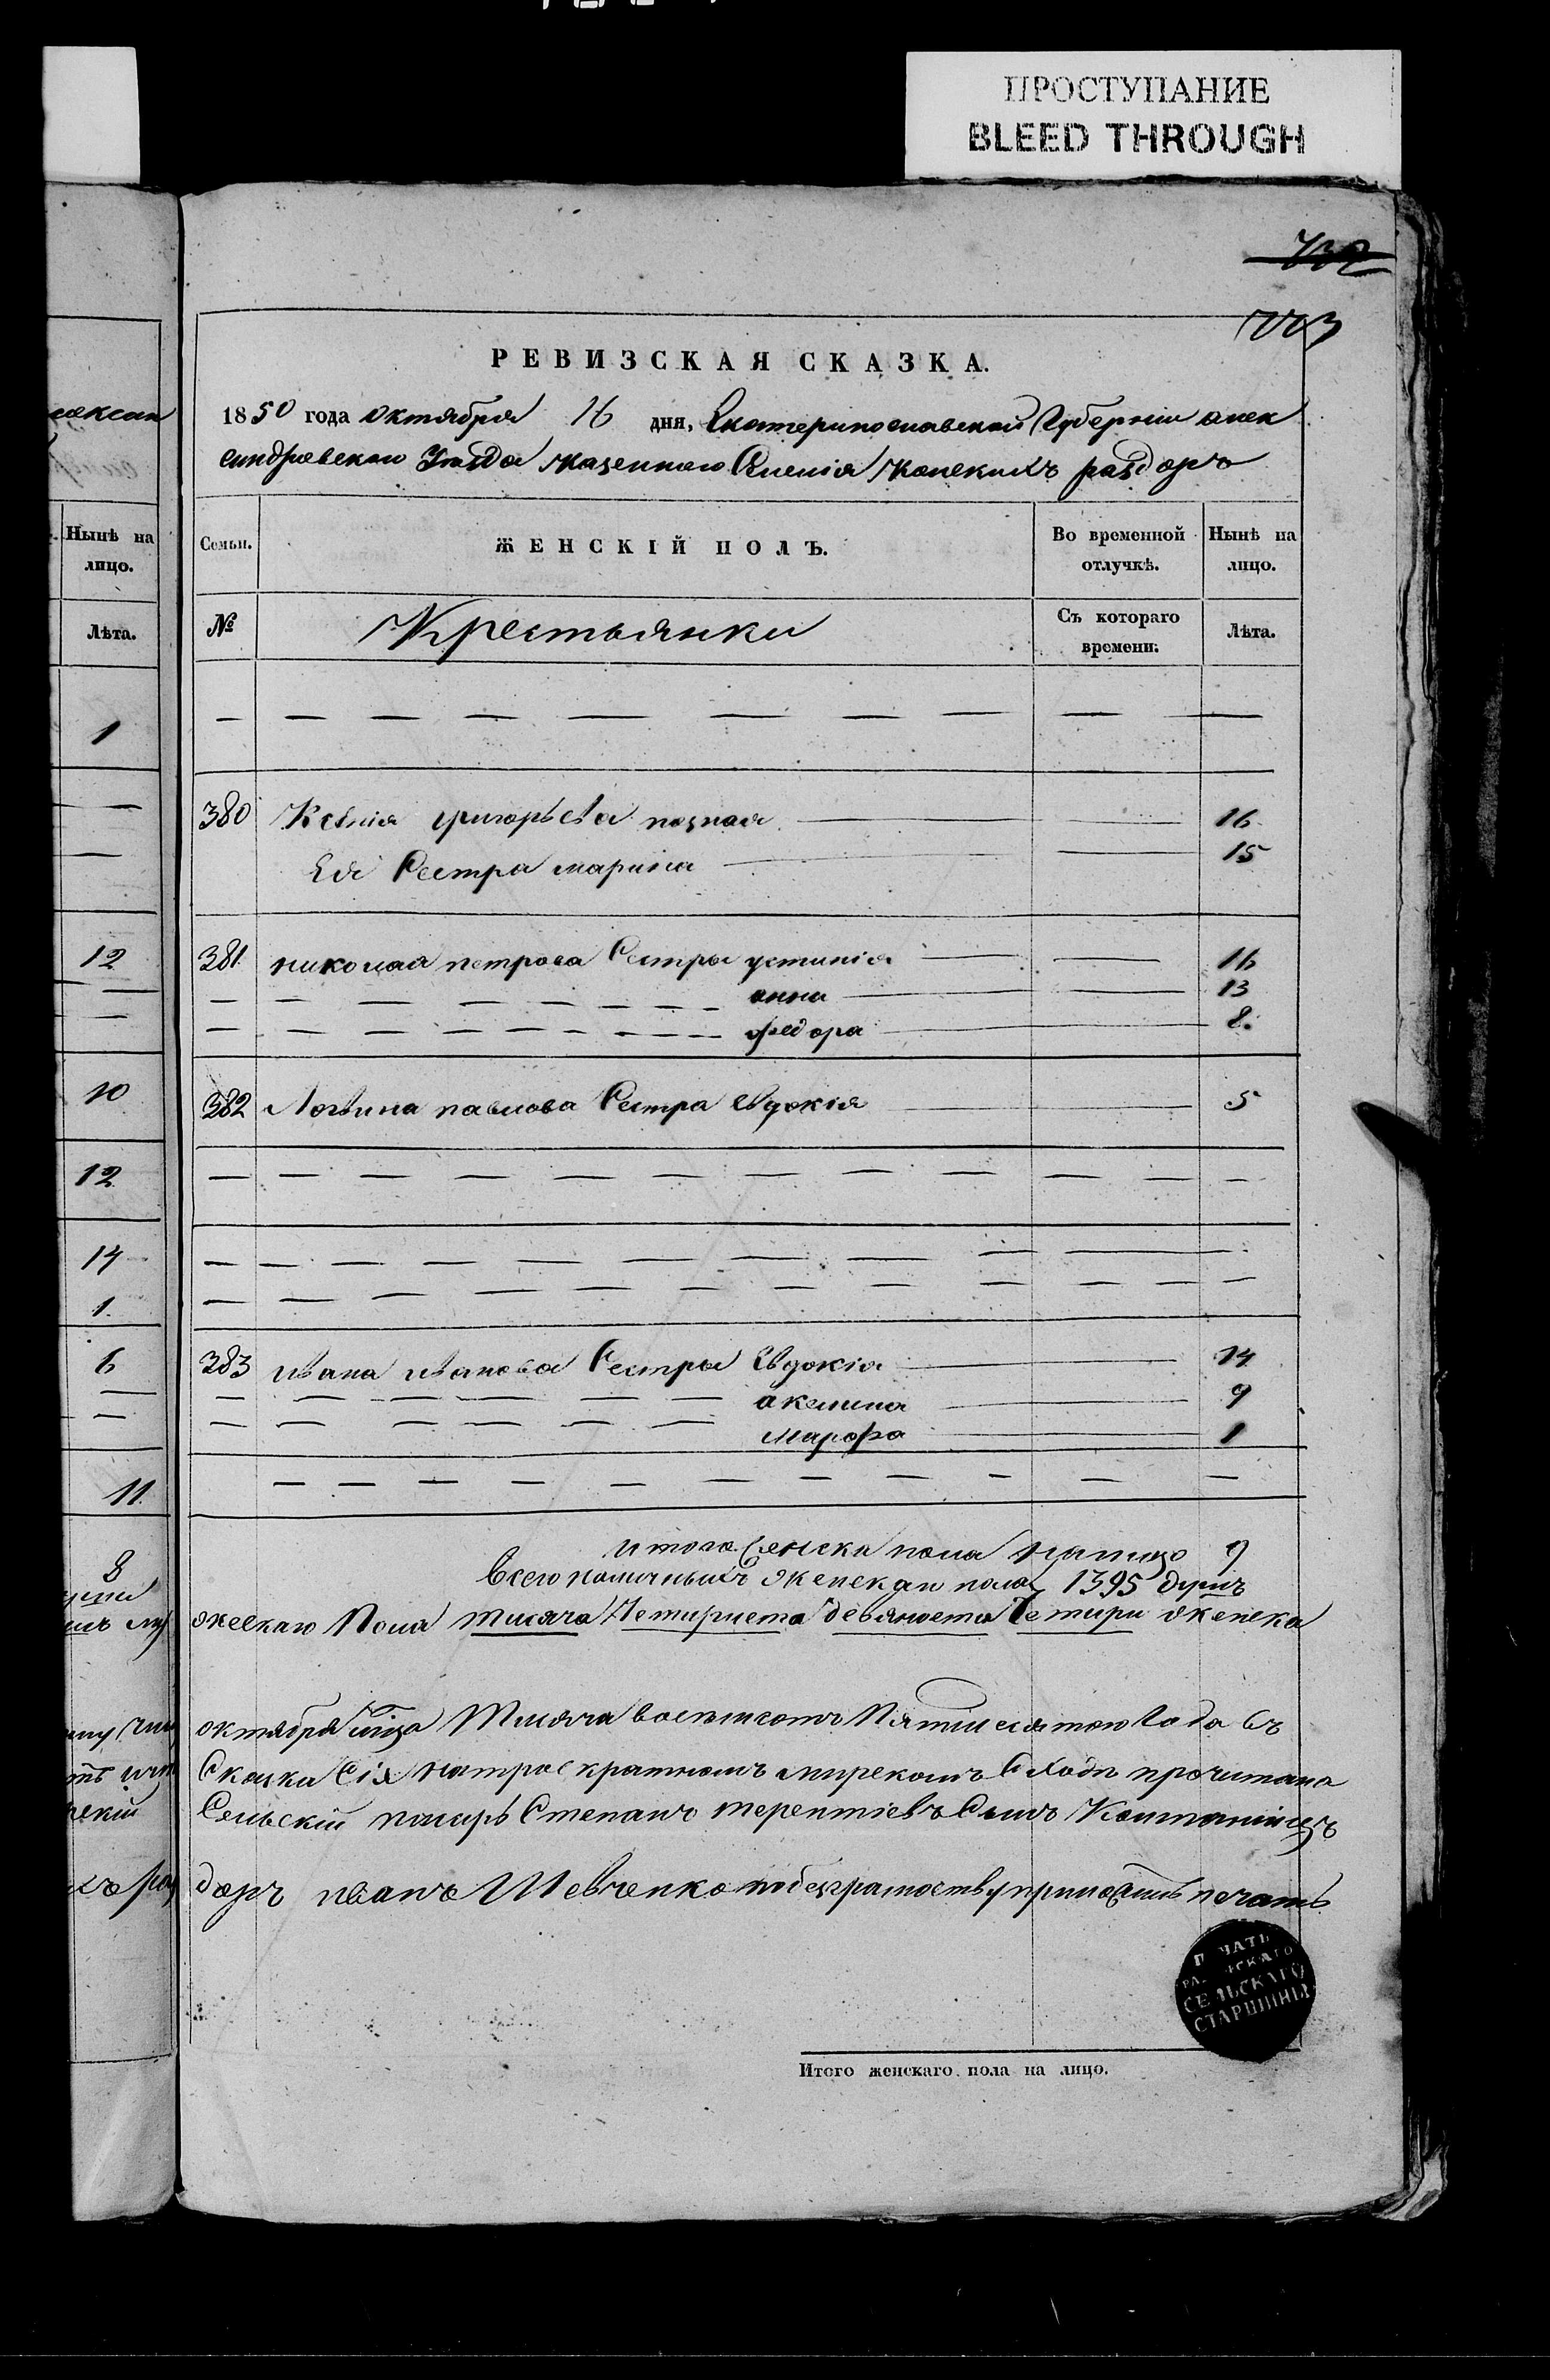 ПРОСТУПАНИЕ
BLEED THROUGH
732
773
РЕВИЗСКАЯ СКАЗКА.
1850 года октября 16 дня, Екатеринославской Губернии алек
сандровскаго уезда казенного Селенія Конскихъ раздоръ
Нынѣ на лицо.
Лѣта.
1
12
10
12
14
1
6
11
8
Семьи.
ЖЕНСКІЙ ПОЛЪ.
Во временной отлучкѣ.
Нынѣ на лицо.
№
Крестьянки
Съ котораго времени.
Лѣта.
380 Ксенія григорьева позная 16
Ея Сестра марина 15
381 николая петрова Сестры устинія 16
анна 13
федора 8
382 Логвина павлова Сестра евдокія 5
383 ивана иванова Сестры Евдокія 14
акелина 9
Марфа 1
итого женска пола налицо 9
Всего наличныхъ женскаго пола 1395 душъ
жескаго Пола тисяча Четириста девяноста Четири женска
октября Тисяча восемсотъ Пятидесятого Года Съ
Сказка Сія натроекратномъ мирскомъ Сходе прочитана
Сельскій писарь Степанъ терентіевъ Сынъ
доръ иванъ Шевченко печать
ПЕЧАТЬ
СЕЛЬСКАГО
СТАРШИНЫ
Итого женскаго пола на лицо.